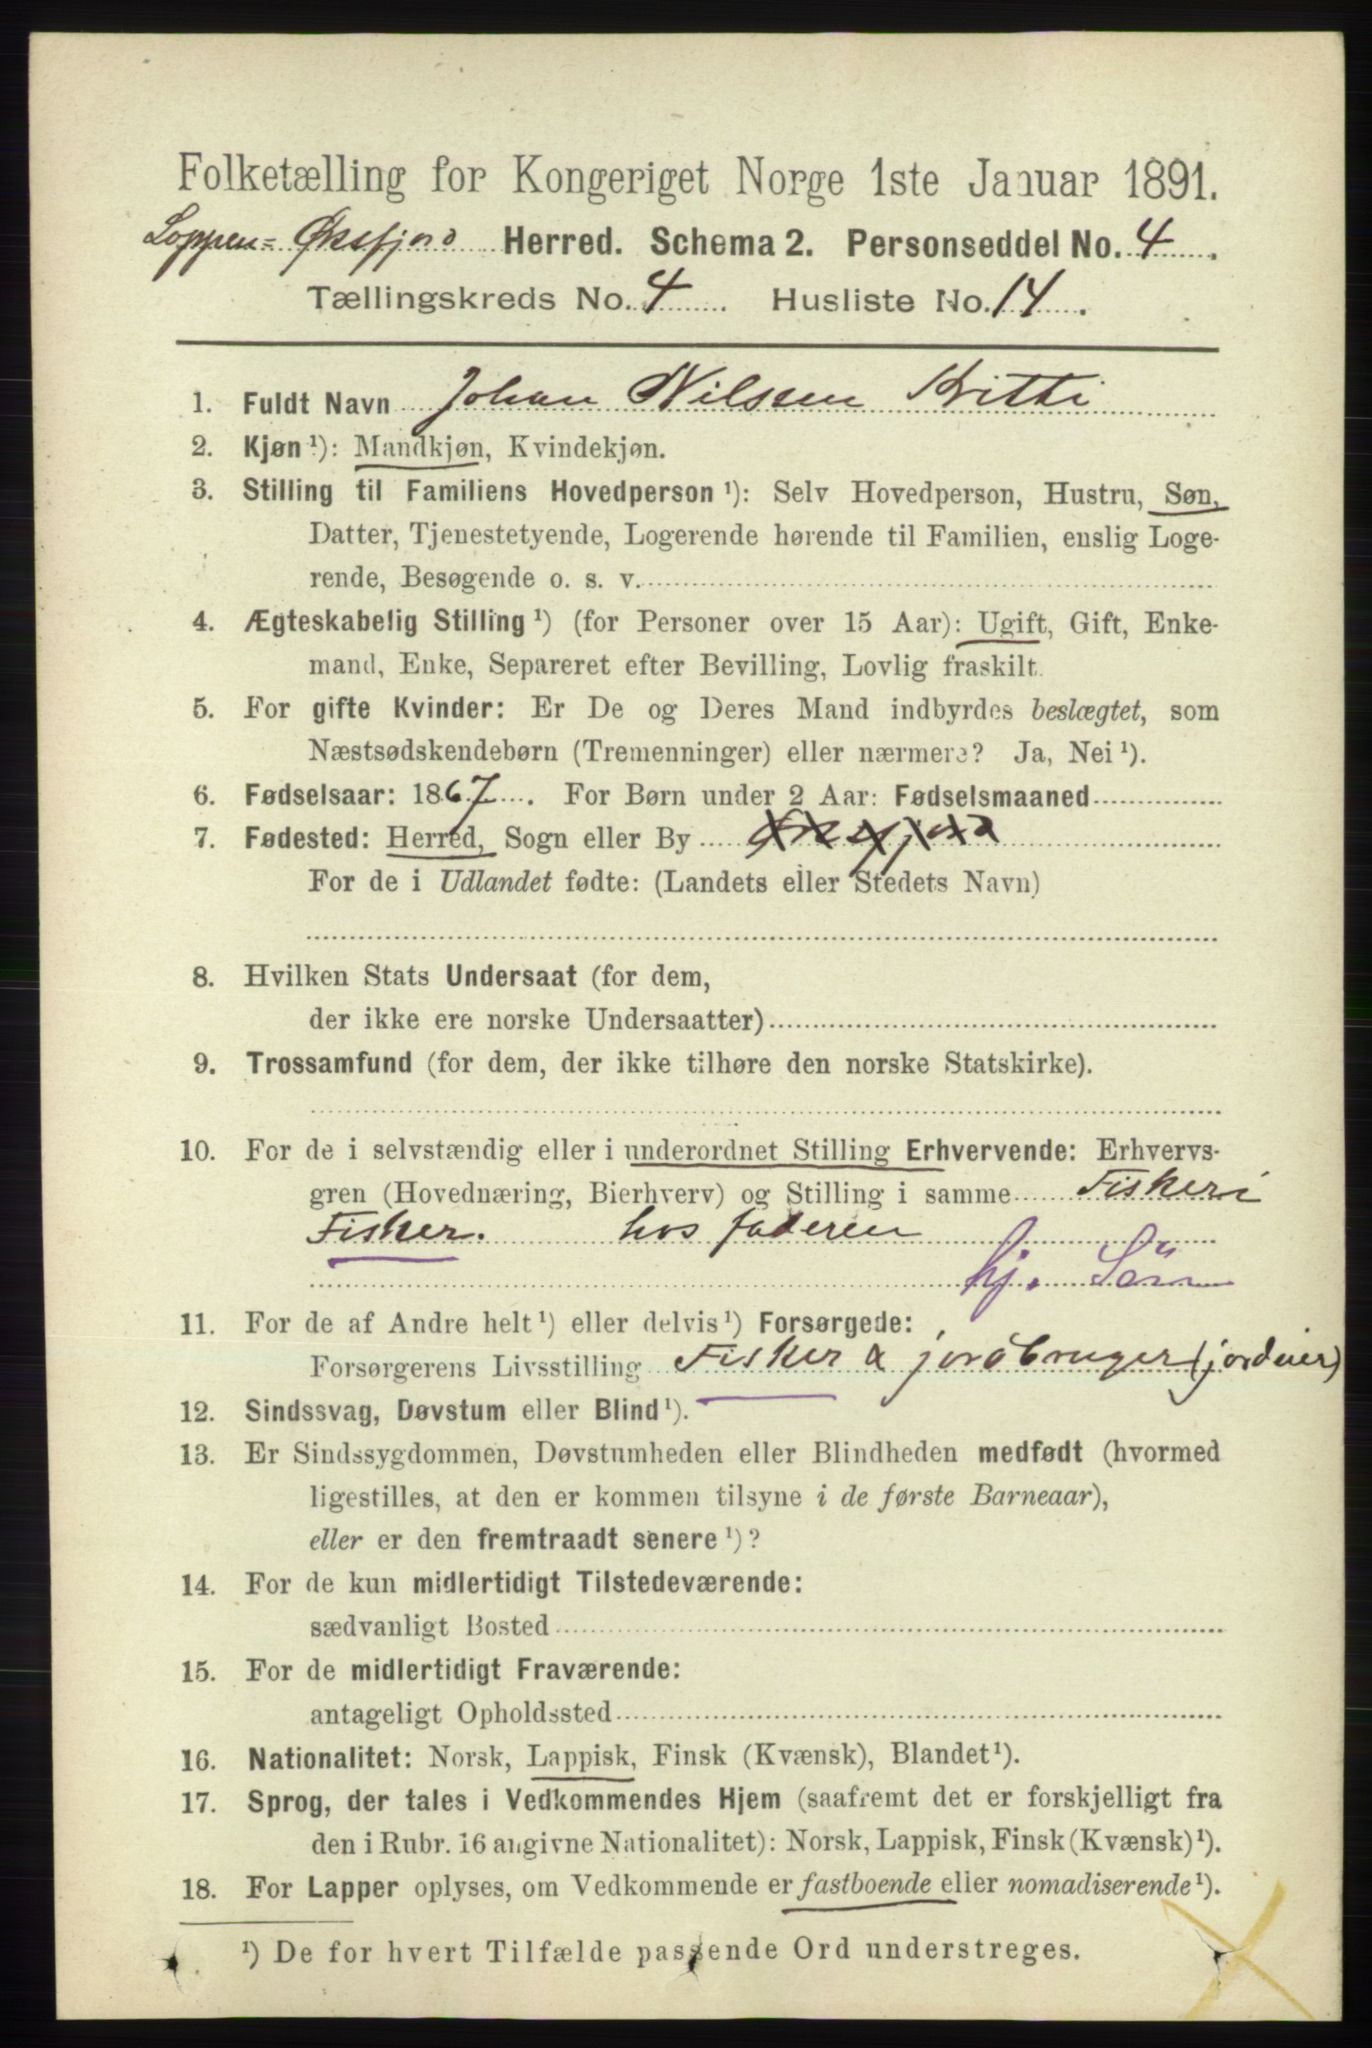 Folketælling for Kongeriget Norge 1ste Januar 1891.
Loppen = Øksfjord Herred. Schema 2. Personseddel No. 4.
Tællingskreds No. 4. Husliste No. 14.
1. Fuldt Navn Johan Nilssen Kitti
2. Kjøn ¹): Mandkjøn, Kvindekjøn.
3. Stilling til Familiens Hovedperson ¹): Selv Hovedperson, Hustru, Søn,
Datter, Tjenestetyende, Logerende hørende til Familien, enslig Loge-
rende, Besøgende o. s. v.
4. Ægteskabelig Stilling ¹) (for Personer over 15 Aar): Ugift, Gift, Enke-
mand, Enke, Separeret efter Bevilling, Lovlig fraskilt.
5. For gifte Kvinder: Er De og Deres Mand indbyrdes beslægtet, som
Næstsødskendebørn (Tremenninger) eller nærmere? Ja, Nei ¹).
6. Fødselsaar: 1867. For Børn under 2 Aar: Fødselsmaaned
7. Fødested: Herred, Sogn eller By Øksfjord
For de i Udlandet fødte: (Landets eller Stedets Navn)
8. Hvilken Stats Undersaat (for dem,
der ikke ere norske Undersaatter)
9. Trossamfund (for dem, der ikke tilhøre den norske Statskirke).
10. For de i selvstændig eller i underordnet Stilling Erhvervende: Erhvervs-
gren (Hovednæring, Bierhverv) og Stilling i samme Fiskeri
Fisker. hos faderen
hj. Sön
11. For de af Andre helt ¹) eller delvis ¹) Forsørgede:
Forsørgerens Livsstilling Fisker & jordbruger (jordeier)
12. Sindssvag, Døvstum eller Blind ¹).
13. Er Sindssygdommen, Døvstumheden eller Blindheden medfødt (hvormed
ligestilles, at den er kommen tilsyne i de første Barneaar),
eller er den fremtraadt senere ¹)?
14. For de kun midlertidigt Tilstedeværende:
sædvanligt Bosted
15. For de midlertidigt Fraværende:
antageligt Opholdssted
16. Nationalitet: Norsk, Lappisk, Finsk (Kvænsk), Blandet ¹).
17. Sprog, der tales i Vedkommendes Hjem (saafremt det er forskjelligt fra
den i Rubr. 16 angivne Nationalitet): Norsk, Lappisk, Finsk (Kvænsk) ¹).
18. For Lapper oplyses, om Vedkommende er fastboende eller nomadiserende ¹).
¹) De for hvert Tilfælde passende Ord understreges.